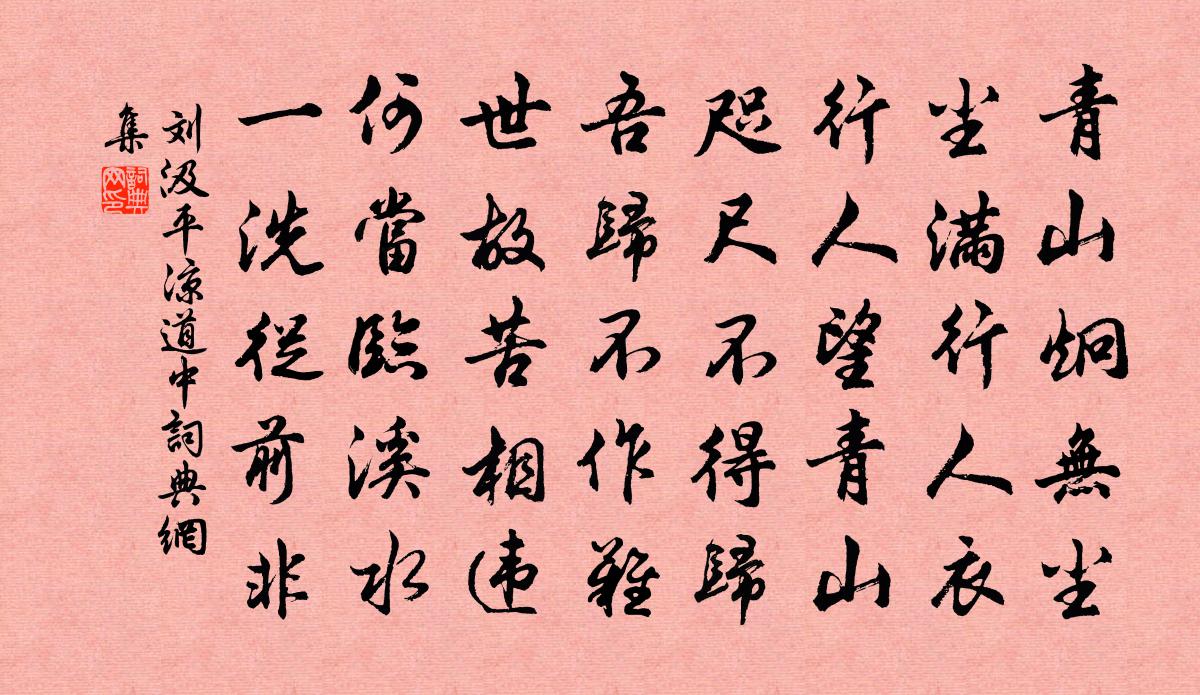 青山炯無尘
尘滿行人衣
行人望青山
咫尺不得歸
吾歸不作難
世故苦相违
何當臨溪水
一洗從前非
刘汲平凉道中詞典網
集
詞典网印